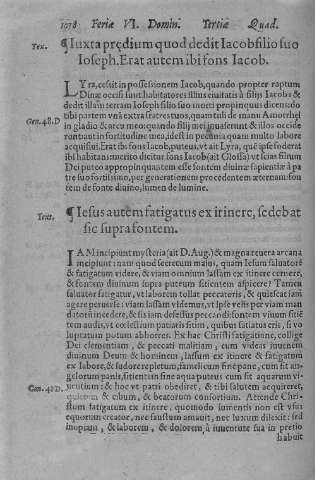 1078 Feriæ VI. Domin. Tertiæ Quad.
Tex. ¶Iuxta prędium quod dedit Iacob filio suo
Ioseph. Erat autem ibi fons Iacob.
LYra, cessit in possessionem Iacob, quando propter raptum
Dinæ occisi sunt habitatores illius ciuitatis à filijs Iacob: &
dedit illam terram Ioseph filio suo morti propinquus dicens: do
tibi partem vnã extra fratres tuos, quam tuli de manu Amorrhęi
Gen. 48. D in gladio & arcu meo: quando filij mei inuaserunt & illos occide
runt: aut in fortitudine mea, idest in pecunia quam multo labore
acquisiui. Erat ibi fons Iacob, puteus, vt ait Lyra, quẽ ipse foderat
ibi habitans: merito dicitur fons Iacob (ait Glossa) vt scias filium
Dei puteo approp quantem esse fontem diuinæ sapientiæ à pa
tre suo fortissimo, per generationem precedentem æternam: fon
tem de fonte diuino, lumen de lumine.
Text. ¶Iesus autem fatigatus ex itinere, sedebat
sic supra fontem.
IAM incipiunt mysteria (ait D. Aug.) & magna reuera arcana
incipiunt: nam quod secretum maius, quam Iesum saluatorẽ
& fatigatum videre, & viam omnium lassam ex itinere cernere,
& fontem diuinum supra puteum sitientem aspicere? Tamen
saluator fatigatur, vt laborem tollat peccatoris, & quiescat iam
agere peruerse: viam lassam videmus, vt ipse velis per viam man
datorũ incedere, & sis iam defessus peccandi: fontem viuum sitiẽ
tem audis, vt cœlestium patiaris sitim, quibus satiatus eris, si vo
luptatum potum abhorres. Ex hac Christi fatigatione, collige
Dei clementiam, & peccati malitiam, cum vides iuuenem
diuinum Deum & hominem, lassum ex itinere & fatigatum
ex labore, & sudore repletum, famelicum sine pane, cum sit an-
gelorum panis, sitientem sine aqua puteus cum sit aquarum vi-
Can. 4. D. uentium: & hoc vt patri obediret, & tibi salutem acquireret,
quietem & cibum, & beatorum consortium. Attende Chri-
stum fatigatum ex itinere, quomodo iumentis non est vsus
equorum creator, nec faustum amauit, nec luxum dilexit: sed
inopiam, & laborem, & dolorem, à iuuentute sua in pretio
habuit